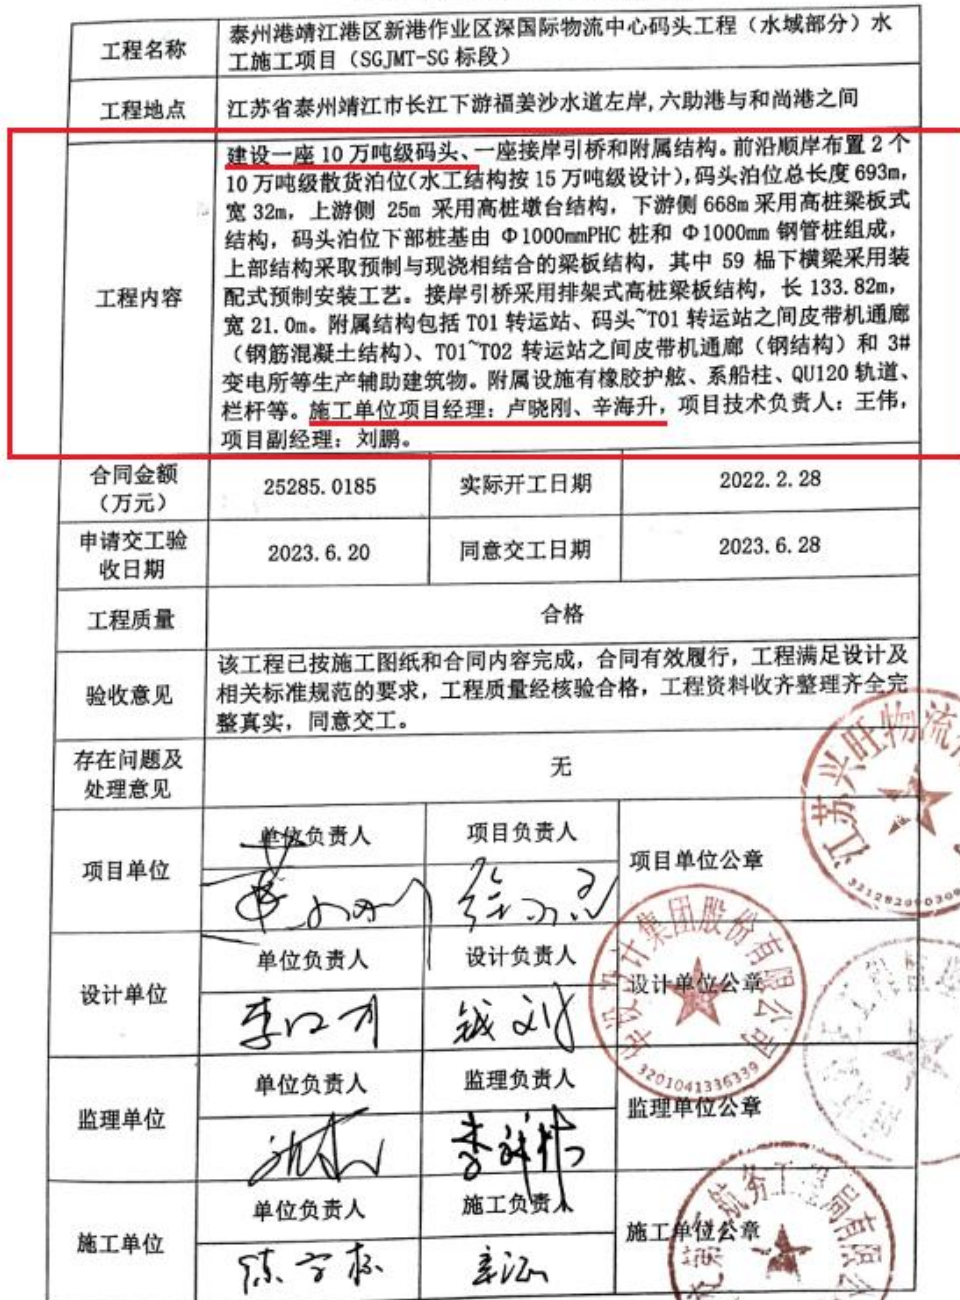 工程名称
泰州港靖江港区新港作业区深国际物流中心码头工程（水域部分）水
工施工项目（SGJMT-SG 标段）
工程地点
江苏省泰州靖江市长江下游福姜沙水道左岸,六助港与和尚港之间
工程内容
建设一座 10 万吨级码头、一座接岸引桥和附属结构。前沿顺岸布置 2 个
10 万吨级散货泊位(水工结构按 15 万吨级设计),码头泊位总长度 693m,
宽 32m, 上游侧 25m 采用高桩墩台结构, 下游侧 668m 采用高桩梁板式
结构, 码头泊位下部桩基由 Φ1000mmPHC 桩和 Φ1000mm 钢管桩组成,
上部结构采取预制与现浇相结合的梁板结构, 其中 59 榀下横梁采用装
配式预制安装工艺。接岸引桥采用排架式高桩梁板结构, 长 133.82m,
宽 21.0m。附属结构包括 T01 转运站、码头~T01 转运站之间皮带机通廊
（钢筋混凝土结构）、T01~T02 转运站之间皮带机通廊（钢结构）和 3#
变电所等生产辅助建筑物。附属设施有橡胶护舷、系船柱、QU120 轨道、
栏杆等。施工单位项目经理: 卢晓刚、辛海升, 项目技术负责人: 王伟,
项目副经理: 刘鹏。
合同金额
（万元）
25285.0185
实际开工日期
2022.2.28
申请交工验
收日期
2023.6.20
同意交工日期
2023.6.28
工程质量
合格
验收意见
该工程已按施工图纸和合同内容完成, 合同有效履行, 工程满足设计及
相关标准规范的要求, 工程质量经核验合格, 工程资料收齐整理齐全完
整真实, 同意交工。
存在问题及
处理意见
无
项目单位
单位负责人
项目负责人
项目单位公章
江苏兴旺物流
设计单位
单位负责人
设计负责人
设计单位公章
设计集团股份有限公司
3201041336339
监理单位
单位负责人
监理负责人
监理单位公章
施工单位
单位负责人
施工负责人
施工单位公章
航务工程局有限公